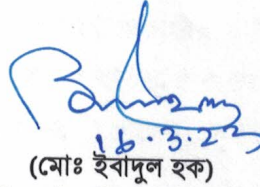 16.3.23
(মোঃ ইবাদুল হক)